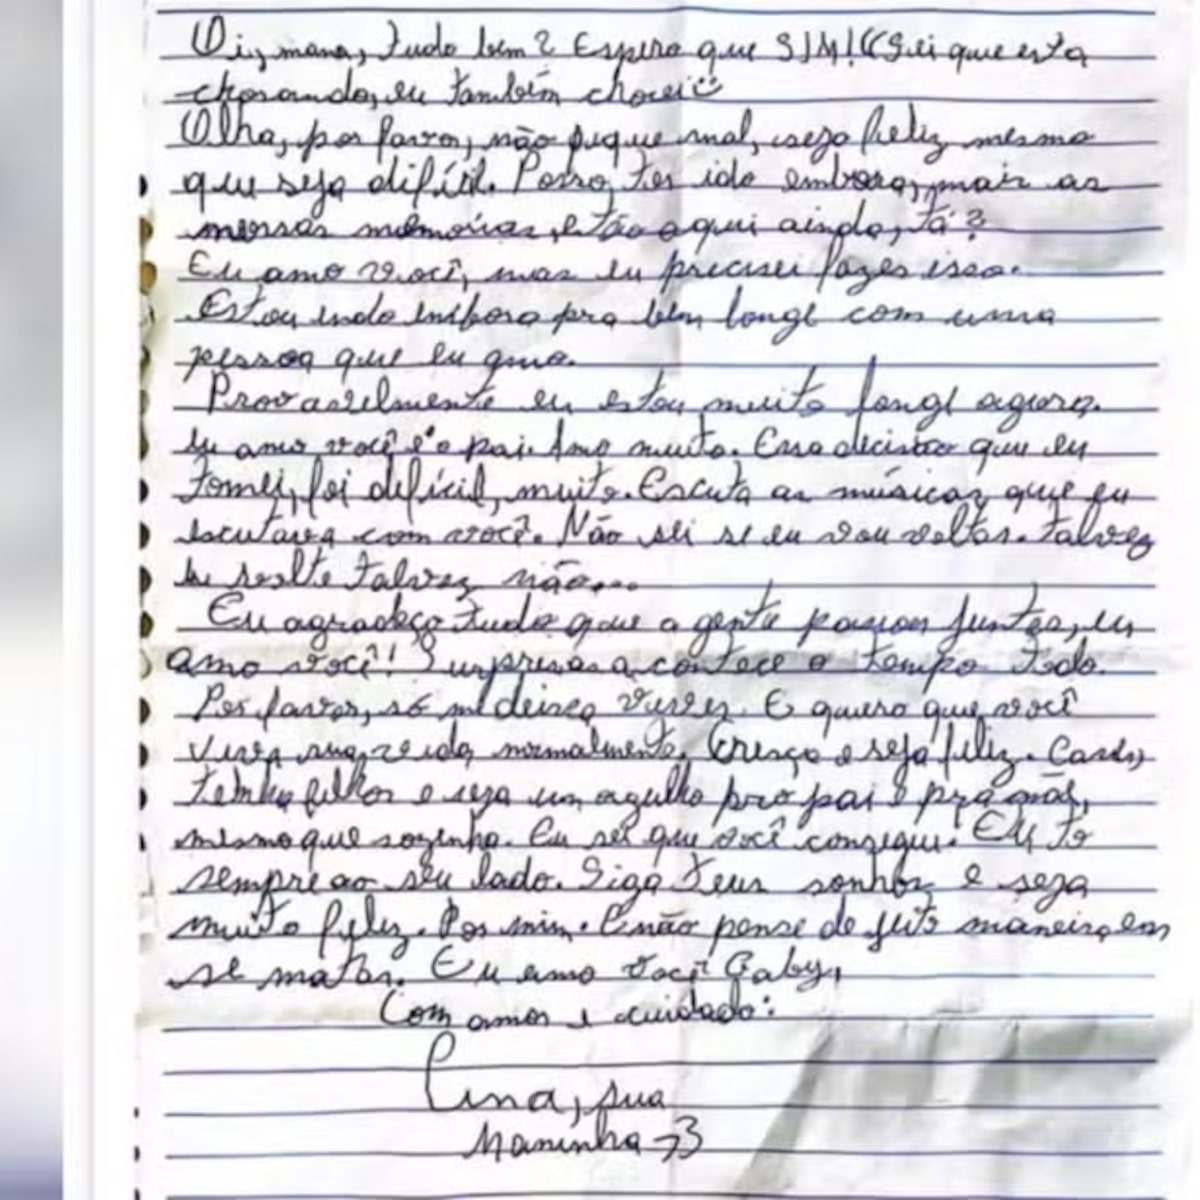 Oi, mana, tudo bem? Espero que SIM! (Sei que esta
chorando, eu também chorei :)
Olha, por favor, não fique mal, seja feliz mesmo
que seja difícil. Posso ter ido embora, mais as
nossas memórias estão aqui ainda, tá?
Eu amo você, mas eu precisei fazer isso.
Estou indo embora pra bem longe com uma
pessoa que eu amo.
Provavelmente eu estou muito longe agora.
Eu amo você e o pai. Amo muito. Essa decisão que eu
tomei, foi difícil, muito. Escuta as músicas que eu
escutava com você. Não sei se eu vou voltar. Talvez
eu volte talvez não...
Eu agradeço tudo que a gente passou juntas, eu
amo você! Surpresas acontece o tempo todo.
Por favor, só me deixa viver. E quero que você
viva sua vida normalmente. Cresça e seja feliz. Case,
tenha filhos e seja um orgulho pro pai e pra mãe,
mesmo que sozinha. Eu sei que você consegue! Eu to
sempre ao seu lado. Siga teus sonhos e seja
muito feliz. Por mim. E não pense de jeito maneira em
se matar. Eu amo você Gaby,
Com amor e cuidado:
sua
Maninha <3